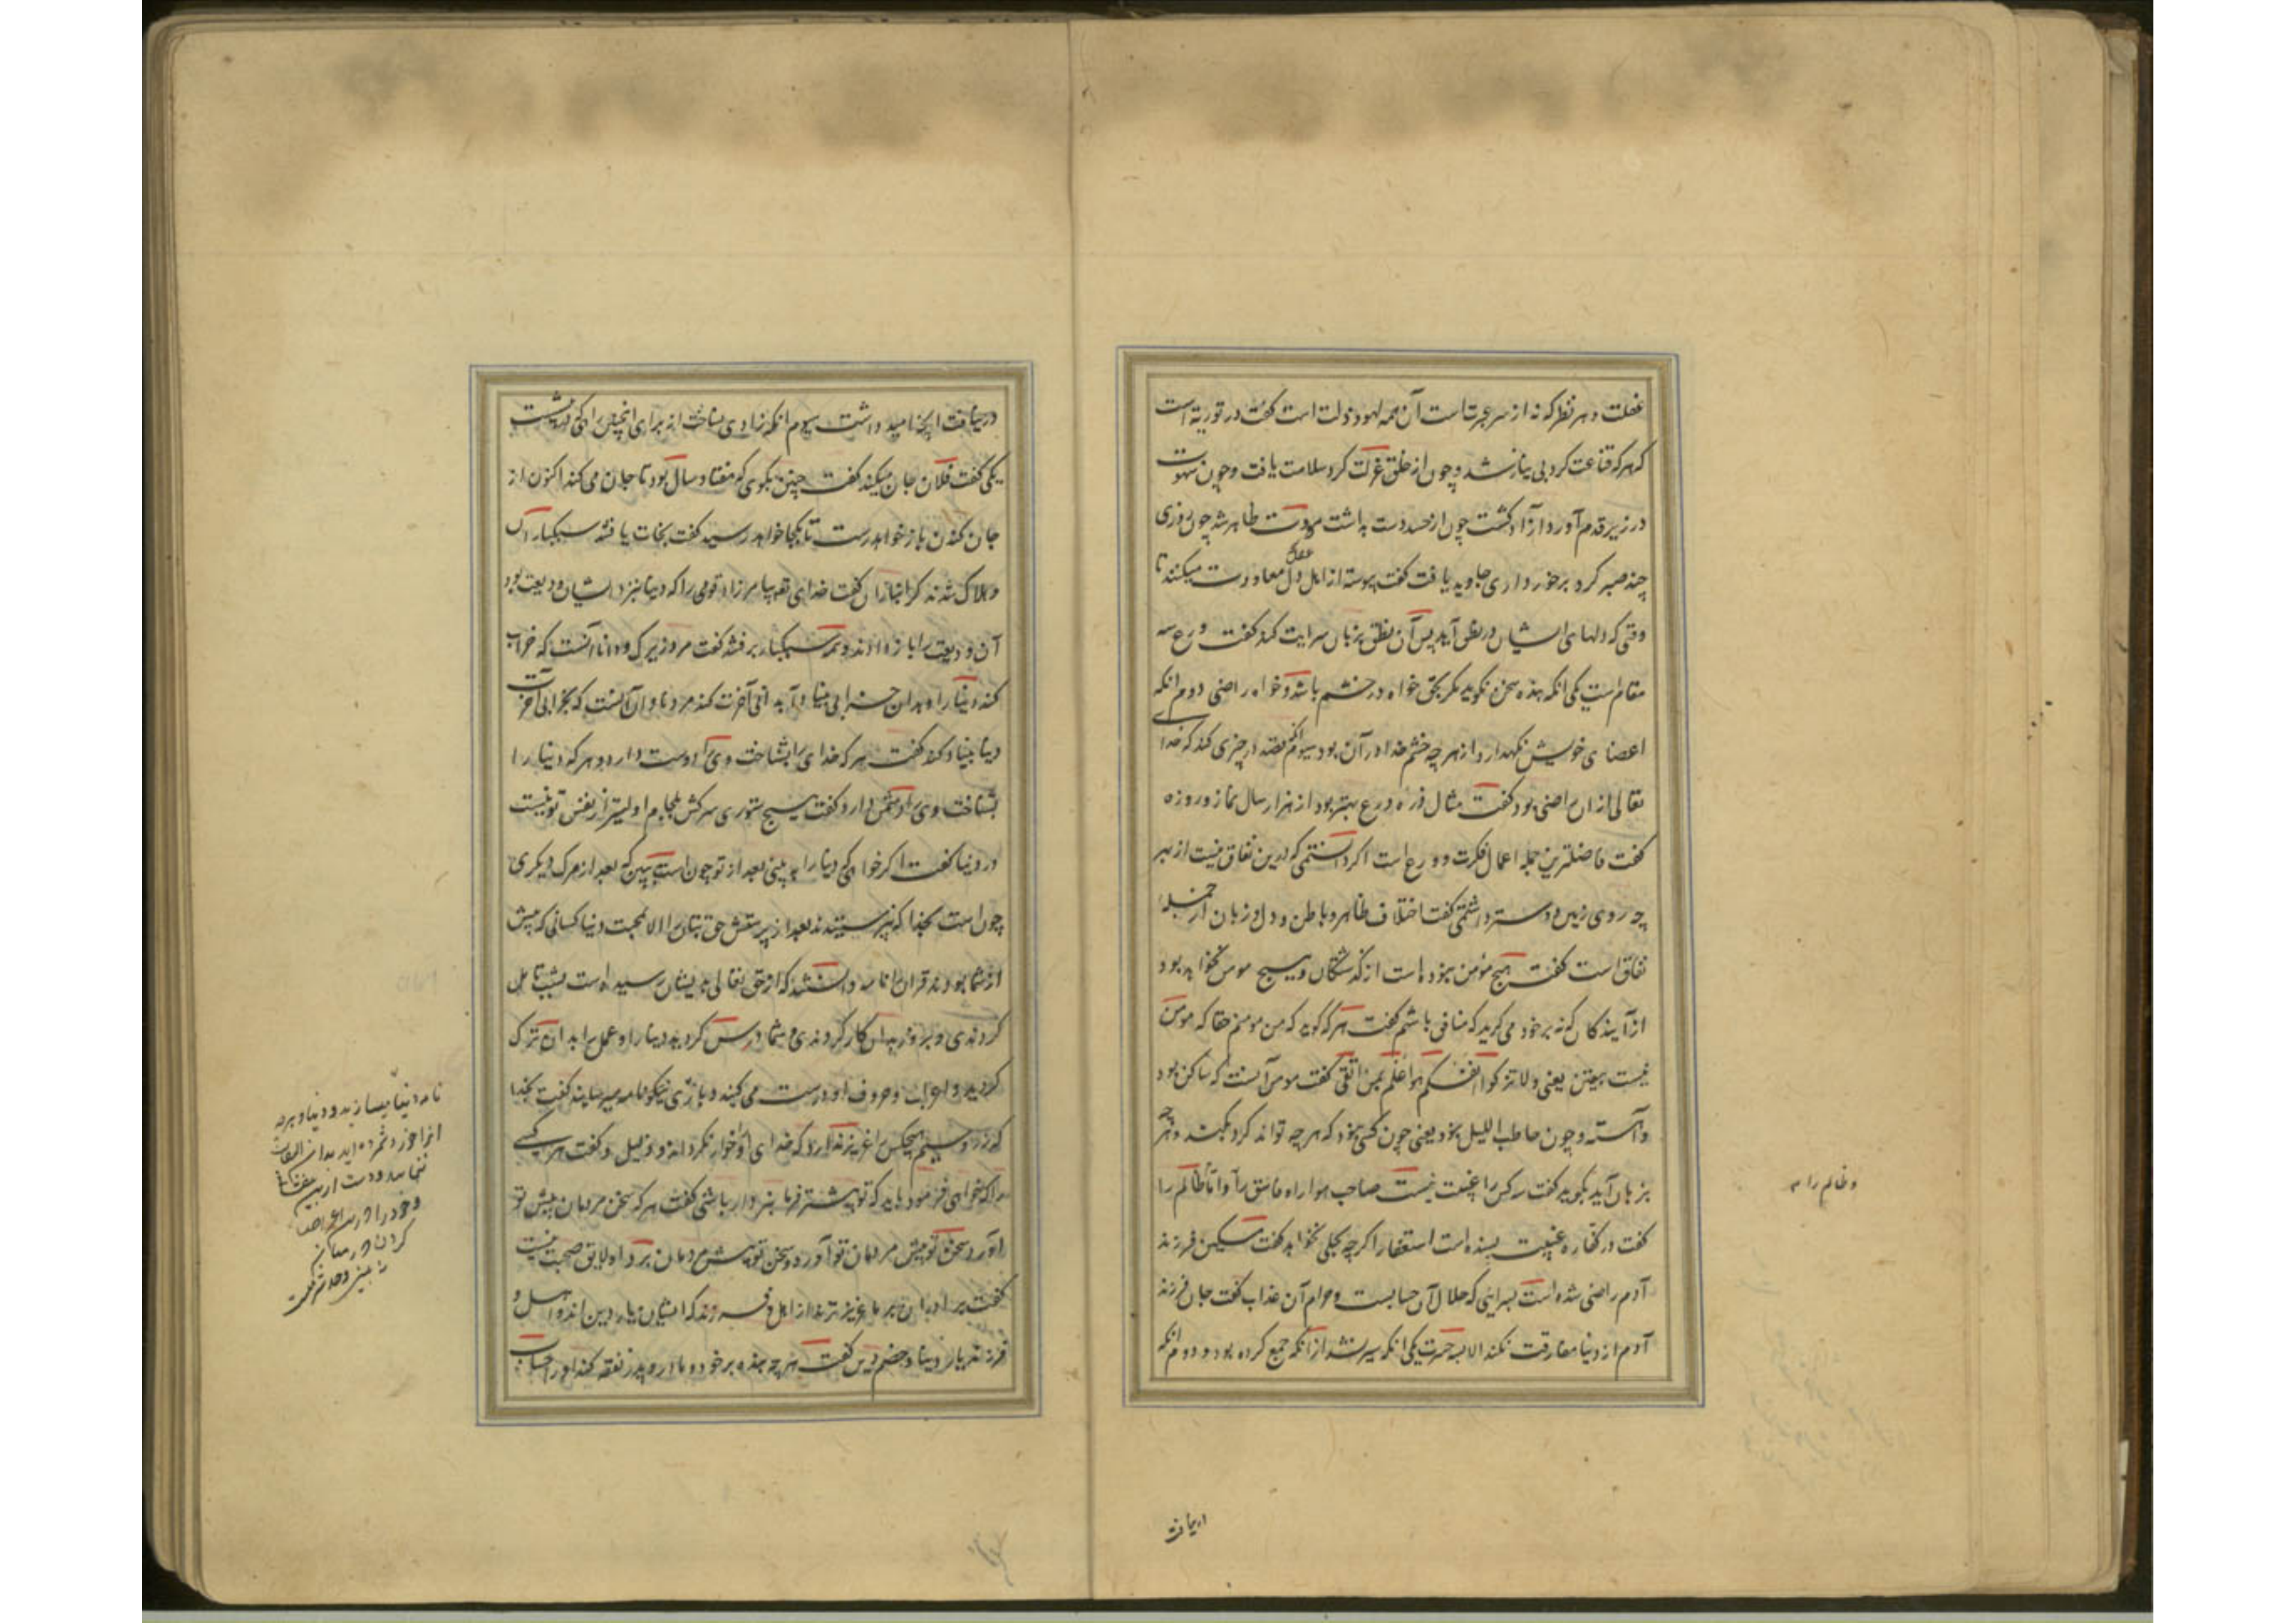 غفلت و هر نظر که نه از سر عبرت است آن همه لهو و ذلت است گفت در توریة است
که هر که قناعت کرد بی نیاز شد و چون از خلق عزلت کرد سلامت یافت و چون شهوت
در زیر قدم آورد آزاد گشت چون از حسد دست بداشت مودت ظاهر شد چون روزی
چند صبر کرد برخورداری جاوید یافت گفت پیوسته از اهل دل معاودت میکنند تا
عقل
وقتی که دلهای ایشان در نطق آید پس آن نطق بزبان سرایت کند گفت ورع سه
مقام است یکی آنکه بنده سخن نگوید مگر بحق خواه در خشم باشد و خواه راضی دوم آنکه
اعضای خویش نگهدارد از هر چه خشم خدا در آن بود سیوم آنکه قصد در چیزی کند که خدای
تعالی از ان راضی بود گفت مثال ذره ورع بهتر بود از هزار سال نماز و روزه
گفت فاضلترین جمله اعمال فکرت و ورع است اگر دانستمی که در من نفاق نیست از هر
چه روی زمین دوستر داشتمی گفت اختلاف ظاهر و باطن و دل و زبان از جمله
نفاق است گفت هیچ مومن نبوده است از گذشتگان و هیچ مومن نخواهد بود
از آیندگان که نه بر خود می لرزید که منافق باشم گفت هر که گوید که من مومنم حقا که مومن
نیست بیقین یعنی ولا تزکوا انفسکم هو اعلم بمن اتقی گفت مومن آنست که ساکن بود
و آهسته و چون حاطب اللیل نبود یعنی چون کسی نبود که هر چه تواند کرد بکند و هر چه
بزبان آید بگوید گفت سه کس را غیبت نیست صاحب هوا را و فاسق را و اما ظالم را
و ظالم را
گفت در کفاره غیبت بسنده است استغفار اگر چه بحلی نخواهد گفت مسکین فرزند
آدم راضی شده است بسرایی که حلال آن حسابست و حرام آن عذاب گفت جان فرزند
آدم از دنیا مفارقت نکند الا بسه حسرت یکی آنکه سیر نشد از آنکه جمع کرده بود و دوم آنکه
دریافت
در نیافت آنچه امید داشت سیوم آنکه زادی نساخت از برای آنچنین راهی که پیش
یکی گفت فلان جان میکند گفت چنین مگوی که هفتاد سال بود تا جان می کند اکنون از
جان کندن باز خواهد رست تا بکجا خواهد رسید گفت نجات یافتند سبکباران
و هلاک شدند گرانباران گفت خدای تعه بیامرزاد قومی را که دنیا بنزد ایشان ودیعت بود
آن ودیعت را باز دادند و همه سبکبار برفتند گفت مرد زیرک و دانا آنست که خراب
کند دنیا را و بدان خرابی بنیاد آبادانی آخرت کند مرد نادان آنست که بخرابی آخرت
دنیا بنیاد کند گفت هر که خدای را بشناخت وی را دوست دارد و هر که دنیا را
بشناخت وی را دشمن دارد گفت هیچ ستوری سرکش بلجام اولیتر از نفس تو نیست
در دنیا گفت اگر خواهی که دنیا را به بینی بعد از تو چون است ببین که بعد از مرگ دیگری
چون است بخدا که نپرستیدند بعد از پرستش حق بتان را الا بمحبت دنیا کسانی که پیش
از شما بودند قرآن را نامه دانستند که از حق تعالی بدیشان رسیده است بشب تامل
کردندی و بروز بدان کار کردندی و شما درس کردید دنیا را و عمل را بدان ترک
کردید و اعراب و حروف او درست می کنید و بازی نیکو نامه میسازند گفت بخدا
که زر و سیم هیچکس را عزیز ندارد که خدای او را خوار نگرداند و ذلیل و گفت هر کسی
را که خواهی فرمود باید که تو بیشتر فرمانبردار باشی گفت هر که سخن مردمان پیش تو
آورد سخن تو پیش مردمان برد او لایق صحبت نیست
گفت برادران بر ما عزیزترند از اهل و فرزند که ایشان یار دین اند و اهل و
فرزند یار دنیا و خصم دین گفت هر چه بنده بر خود و مادر و پدر نفقه کند آنرا حساب